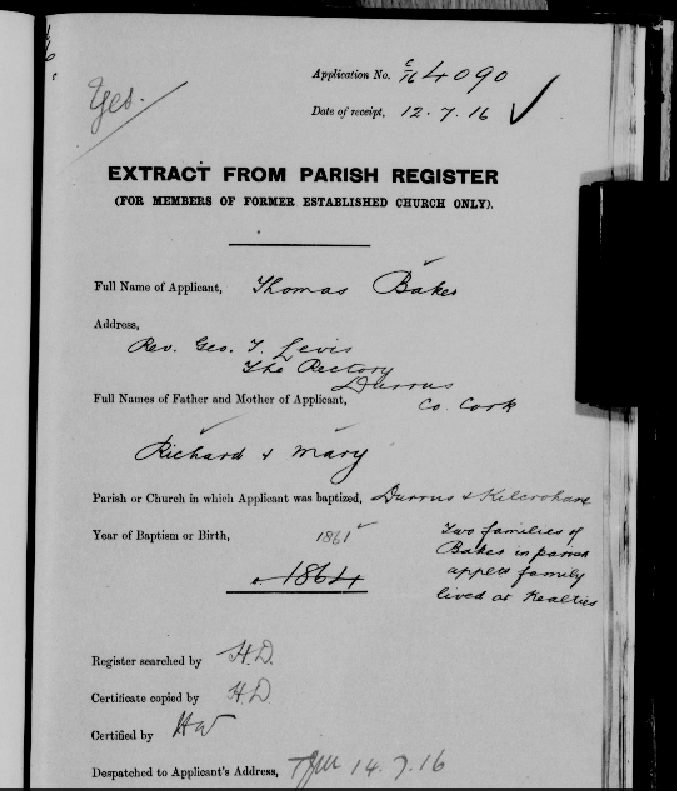 Yes.
Application No. C/16 4090
Date of receipt, 12.7.16
EXTRACT FROM PARISH REGISTER
(FOR MEMBERS OF FORMER ESTABLISHED CHURCH ONLY).
Full Name of Applicant, Thomas Baker
Address,
Rev. Geo. T. Levis
The Rectory
Durrus
Co. Cork
Full Names of Father and Mother of Applicant,
Richard & Mary
Parish or Church in which Applicant was baptized, Durrus & Kilcrohane
Year of Baptism or Birth, 1861
1864
Two families of
Baker in parish
applts family
lived at Kealties
Register searched by H.D.
Certificate copied by H.D.
Certified by HW
Despatched to Applicant's Address, 14.7.16